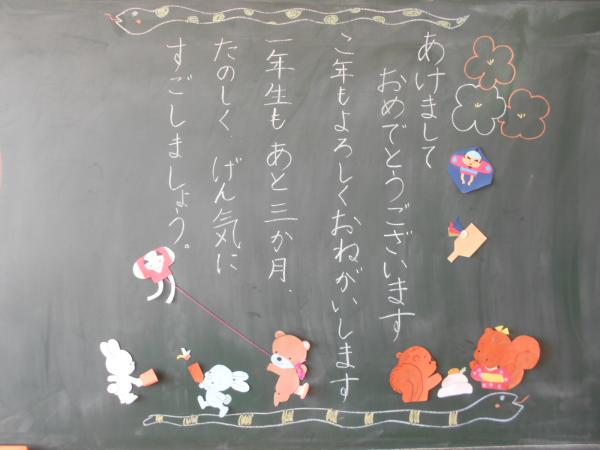 あけまして
おめでとうございます
こ年もよろしくおねがいします
一年生もあと三か月、
たのしく、げん気に
すごしましょう。